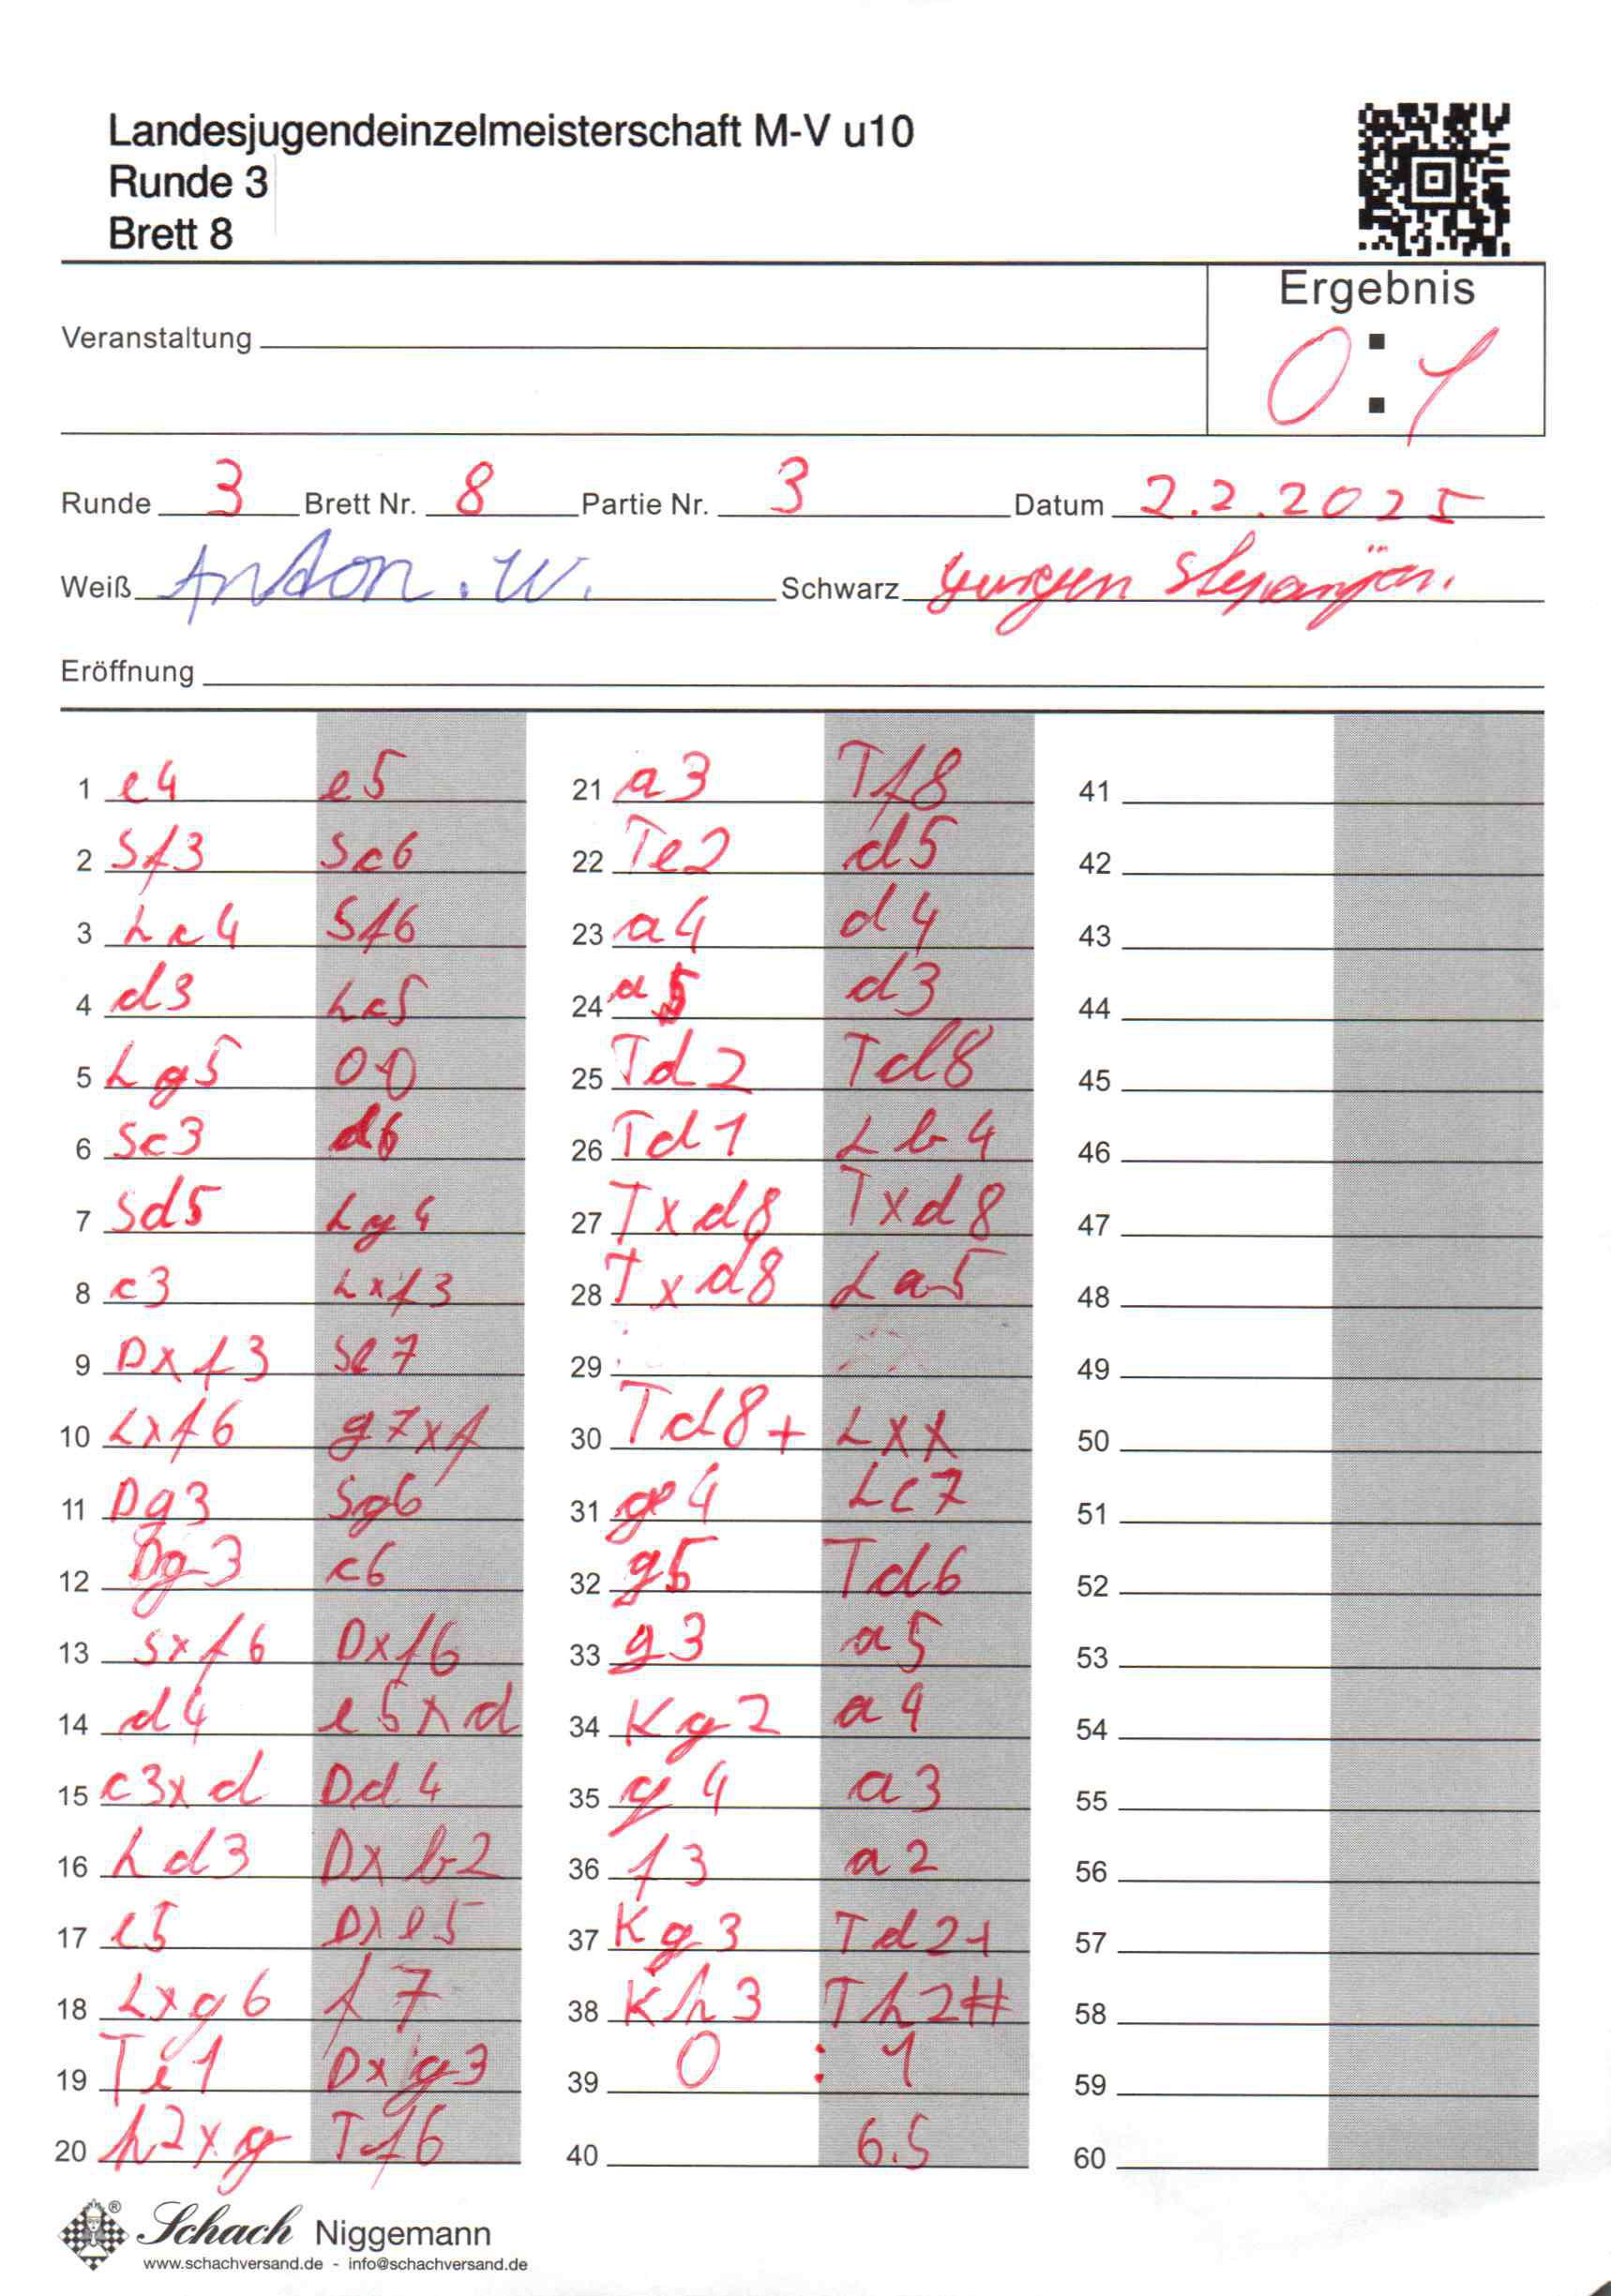 Landesjugendeinzelmeisterschaft M-V u10
Runde 3
Brett 8
Ergebnis
0 : 1
Veranstaltung
Runde 3 Brett Nr. 8 Partie Nr. 3 Datum 2.2.2025
Weiß Anton. W. Schwarz
Eröffnung
1 e4 e5
2 Sf3 Sc6
3 Lc4 Sf6
4 d3 Lc5
5 Lg5 0-0
6 Sc3 d6
7 Sd5 Lg4
8 c3 Lxf3
9 Dxf3 Se7
10 Lxf6 g7xf
11 Dg3 Sg6
12 Dg3 c6
13 Sxf6 Dxf6
14 d4 e5xd
15 c3xd Dd4
16 Ld3 Dxb2
17 e5 Dxe5
18 Lxg6 f7
19 Te1 Dxg3
20 h2xg Tf6
21 a3 Tf8
22 Te2 d5
23 a4 d4
24 a5 d3
25 Td2 Td8
26 Td1 Lb4
27 Txd8 Txd8
28 Txd8 La5
29
30 Td8+ Lxx
31 g4 Lc7
32 g5 Td6
33 g3 a5
34 Kg2 a4
35 g4 a3
36 f3 a2
37 Kg3 Td2+
38 Kh3 Th2#
39 0 : 1
40 6.5
41
42
43
44
45
46
47
48
49
50
51
52
53
54
55
56
57
58
59
60
Schach Niggemann
www.schachversand.de - info@schachversand.de